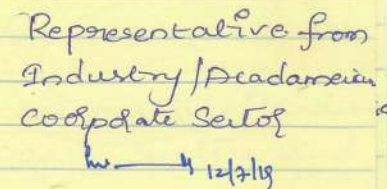 Representative from
Industry/Acadameian
Coorporate Sector
12/7/19